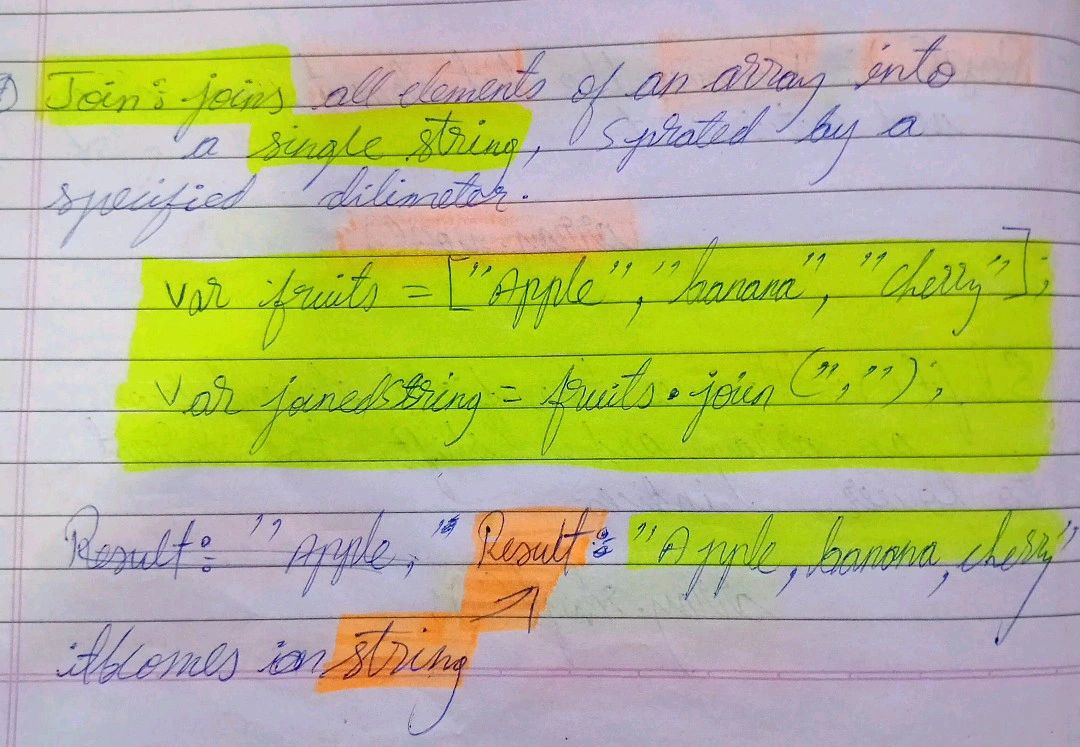 Join: joins all elements of an array into
a single string, sprated by a
specified dilimeter.
Var fruits = ["Apple", "banana", "cherry"];
Var joinedString = fruits.join(",");
Result: "Apple," Result: "Apple, banana, cherry"
itbcomes in string